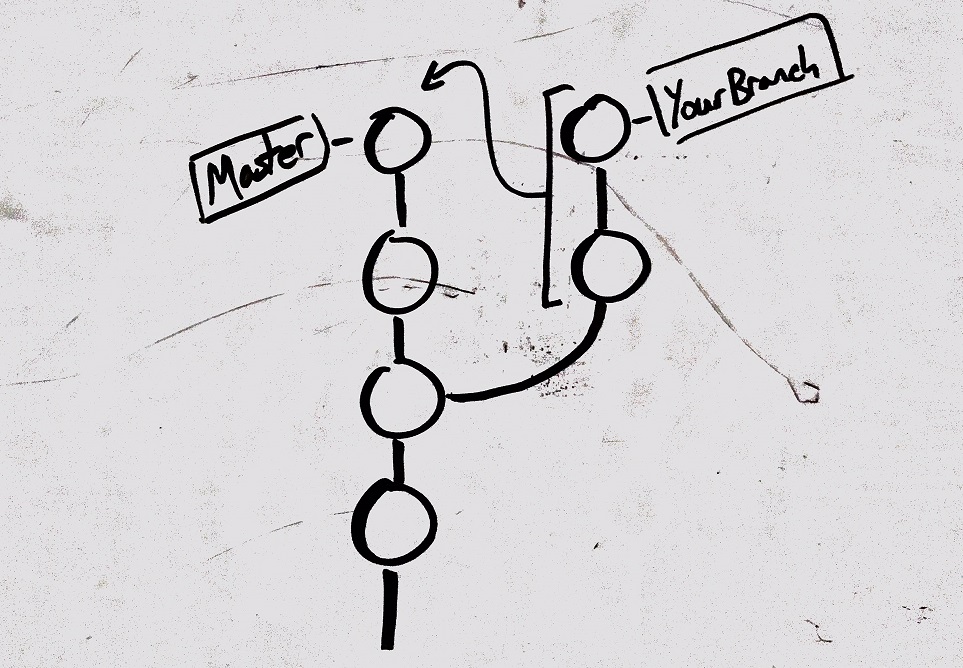 Master
YourBranch